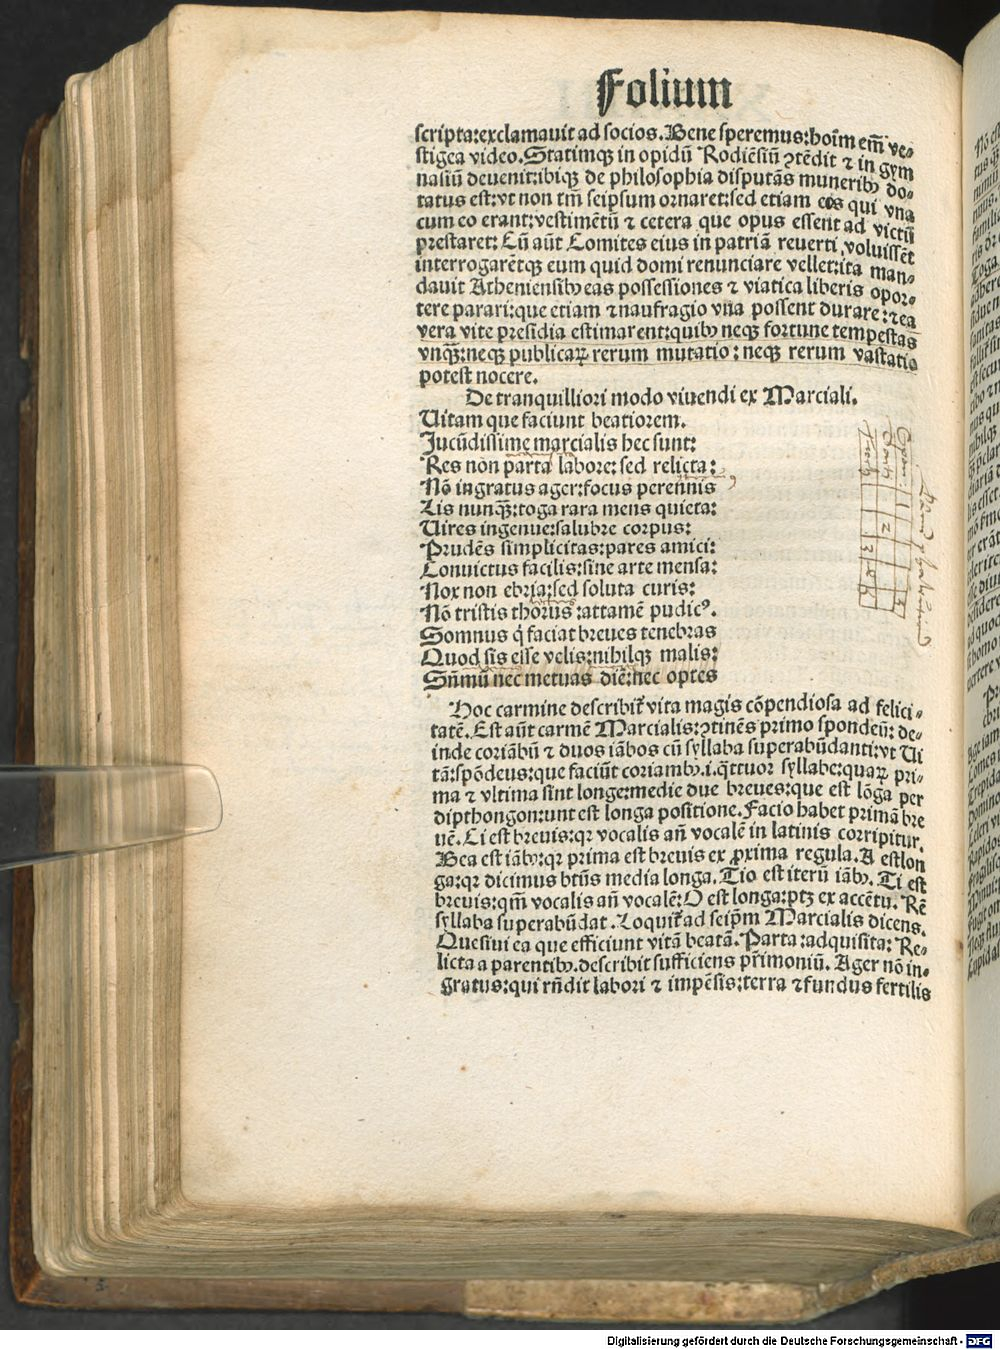 Folium
scripta:exclamauit ad socios. Bene speremus:hoīm em̄ ve⸗
stigea video. Statimqȝ in opidū Rodiēsiū ↄtēdit ⁊ in gym
nasiū deuenit:ibiqȝ de philosophia disputās muneribꝰ do⸗
tatus est:vt non tm̄ seipsum ornaret:sed etiam eos qui vna
cum eo erant:vestimētū ⁊ cetera que opus essent ad victū
prestaret: Cū aūt Comites eius in patriā reuerti voluissēt
interrogarētqȝ eum quid domi renunciare vellet:ita man⸗
dauit Atheniensibꝰ eas possessiones ⁊ viatica liberis opor⸗
tere parari:que etiam ⁊ naufragio vna possent durare:⁊ ea
vera vite presidia estimarent:quibꝰ neqȝ fortune tempestas
vnqȝ̄:neqȝ publicaꝝ rerum mutatio:neqȝ rerum vastatio
potest nocere.
De tranquilliori modo viuendi ex Marciali.
Uitam que faciunt beatiorem.
Jucūdissime marcialis hec sunt:
Res non parta labore: sed relicta:
Nō ingratus ager:focus perennis
Lis nunqȝ̄:toga rara mens quieta:
Uires ingenue:salubre corpus:
Prudēs simplicitas:pares amici:
Conuictus facilis:sine arte mensa:
Nox non ebria:sed soluta curis:
Nō tristis thorus:attamē pudicꝰ.
Somnus q̇ faciat breues tenebras
Quod sis esse velis:nihilqȝ malis:
Sūmū nec metuas diē:nec optes
Hoc carmine describit̄ vita magis cōpendiosa ad felici⸗
tatē. Est aūt carmē Marcialis:ↄtinēs primo spondeū: de⸗
inde coriābū ⁊ duos iābos cū syllaba superabūdanti:vt Ui
tā:spōdeus:que faciūt coriambꝰ.i.q̄ttuor syllabe:quaꝝ pri⸗
ma ⁊ vltima sint longe:medie due breues:que est lōga per
dipthongon:unt est longa positione. Facio habet primā bre
uē. Ci est breuis:qꝛ vocalis añ vocalē in latinis corripitur.
Bea est iābꝰ:qꝛ prima est breuis ex ꝓxima regula. A est lon
ga:qꝛ dicimus btūs media longa. Tio est iterū iābꝰ. Ti est
breuis:qm̄ vocalis añ vocalē:O est longa:ptȝ ex accētu. Rē
syllaba superabūdat. Loquit̄ ad seip̄m Marcialis dicens.
Quesiui ea que efficiunt vitā beatā. Parta:adquisita: Re⸗
licta a parentibꝰ.describit sufficiens pr̄imoniū. Ager nō in⸗
gratus:qui rn̄dit labori ⁊ impēsis:terra ⁊ fundus fertilis
Digitalisierung gefördert durch die Deutsche Forschungsgemeinschaft - DFG